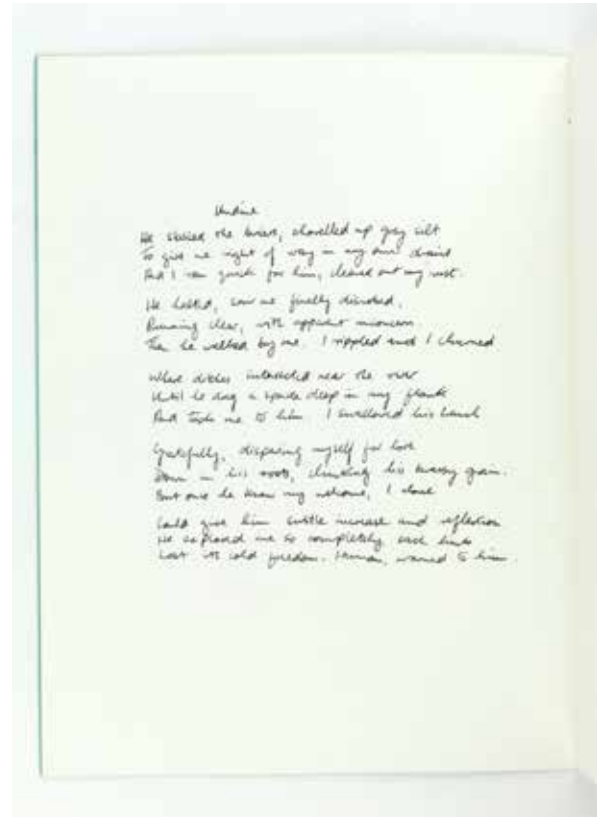 Undine
He slashed the briars, shovelled up grey silt
To give me right of way in my own drains
And I ran quick for him, cleaned out my rust.
He halted, saw me finally disrobed,
Running clear, with apparent unconcern.
Then he walked by me. I rippled and I churned
Where ditches intersected near the river
Until he dug a spade deep in my flank
And took me to him. I swallowed his trench
Gratefully, dispersing myself for love
Down in his roots, climbing his brassy grain.
But once he knew my welcome, I alone
Could give him subtle increase and reflection
He explored me so completely each limb
Lost its cold freedom. Human, warmed to him.